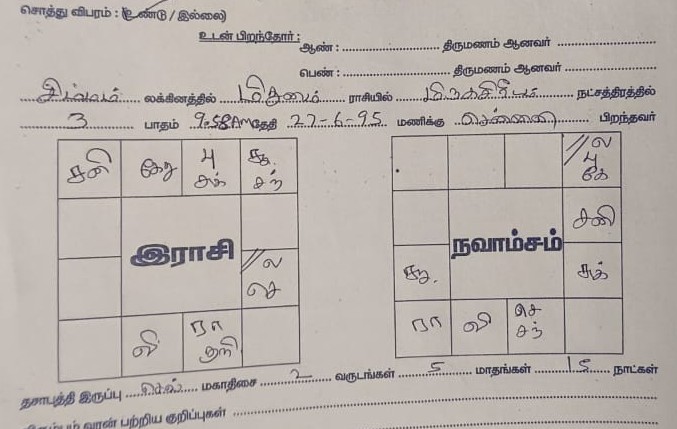 சொத்து விபரம் : (உண்டு / இல்லை)
உடன் பிறந்தோர் :
ஆண் : .................. திருமணம் ஆனவர் ..................
பெண் : .................. திருமணம் ஆனவர் ..................
சிம்மம் லக்கினத்தில் மிதுனம் ராசியில் மிருகசிரீடம் நட்சத்திரத்தில்
3 பாதம் 9.58AM தேதி 27-6-95 மணிக்கு சென்னை பிறந்தவர்
சனி கேது பு சுக் சூ சந்
இராசி
ல செ
வி ரா
ல பு கே
சனி
நவாம்சம்
சூ. சுக்
ரா வி செ சந்
தசாபுத்தி இருப்பு செவ் மகாதிசை 2 வருடங்கள் 5 மாதங்கள் 15 நாட்கள்
வரன் பற்றிய குறிப்புகள்